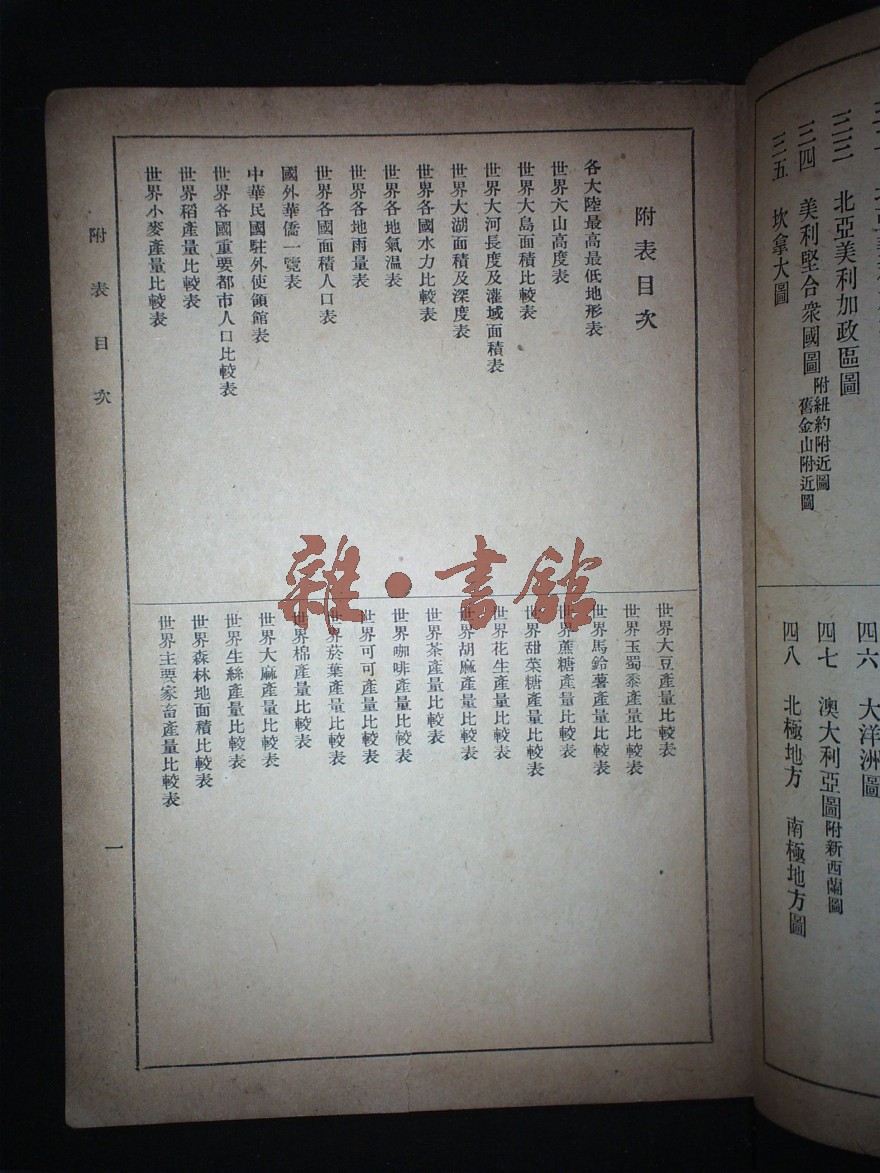 三三 北亞美利加政區圖
三四 美利堅合衆國圖 附紐約附近圖 舊金山附近圖
三五 坎拿大圖
四六 大洋洲圖
四七 澳大利亞圖 附新西蘭圖
四八 北極地方 南極地方圖
附表目次
各大陸最高最低地形表
世界大山高度表
世界大島面積比較表
世界大河長度及灌域面積表
世界大湖面積及深度表
世界各國水力比較表
世界各地氣温表
世界各地雨量表
世界各國面積人口表
國外華僑一覽表
中華民國駐外使領館表
世界各國重要都市人口比較表
世界稻產量比較表
世界小麥產量比較表
世界大豆產量比較表
世界玉蜀黍產量比較表
世界馬鈴薯產量比較表
世界蔗糖產量比較表
世界甜菜糖產量比較表
世界花生產量比較表
世界胡麻產量比較表
世界茶產量比較表
世界咖啡產量比較表
世界可可產量比較表
世界菸葉產量比較表
世界棉產量比較表
世界大麻產量比較表
世界生絲產量比較表
世界森林地面積比較表
世界主要家畜產量比較表
附表目次
一
雜·書館